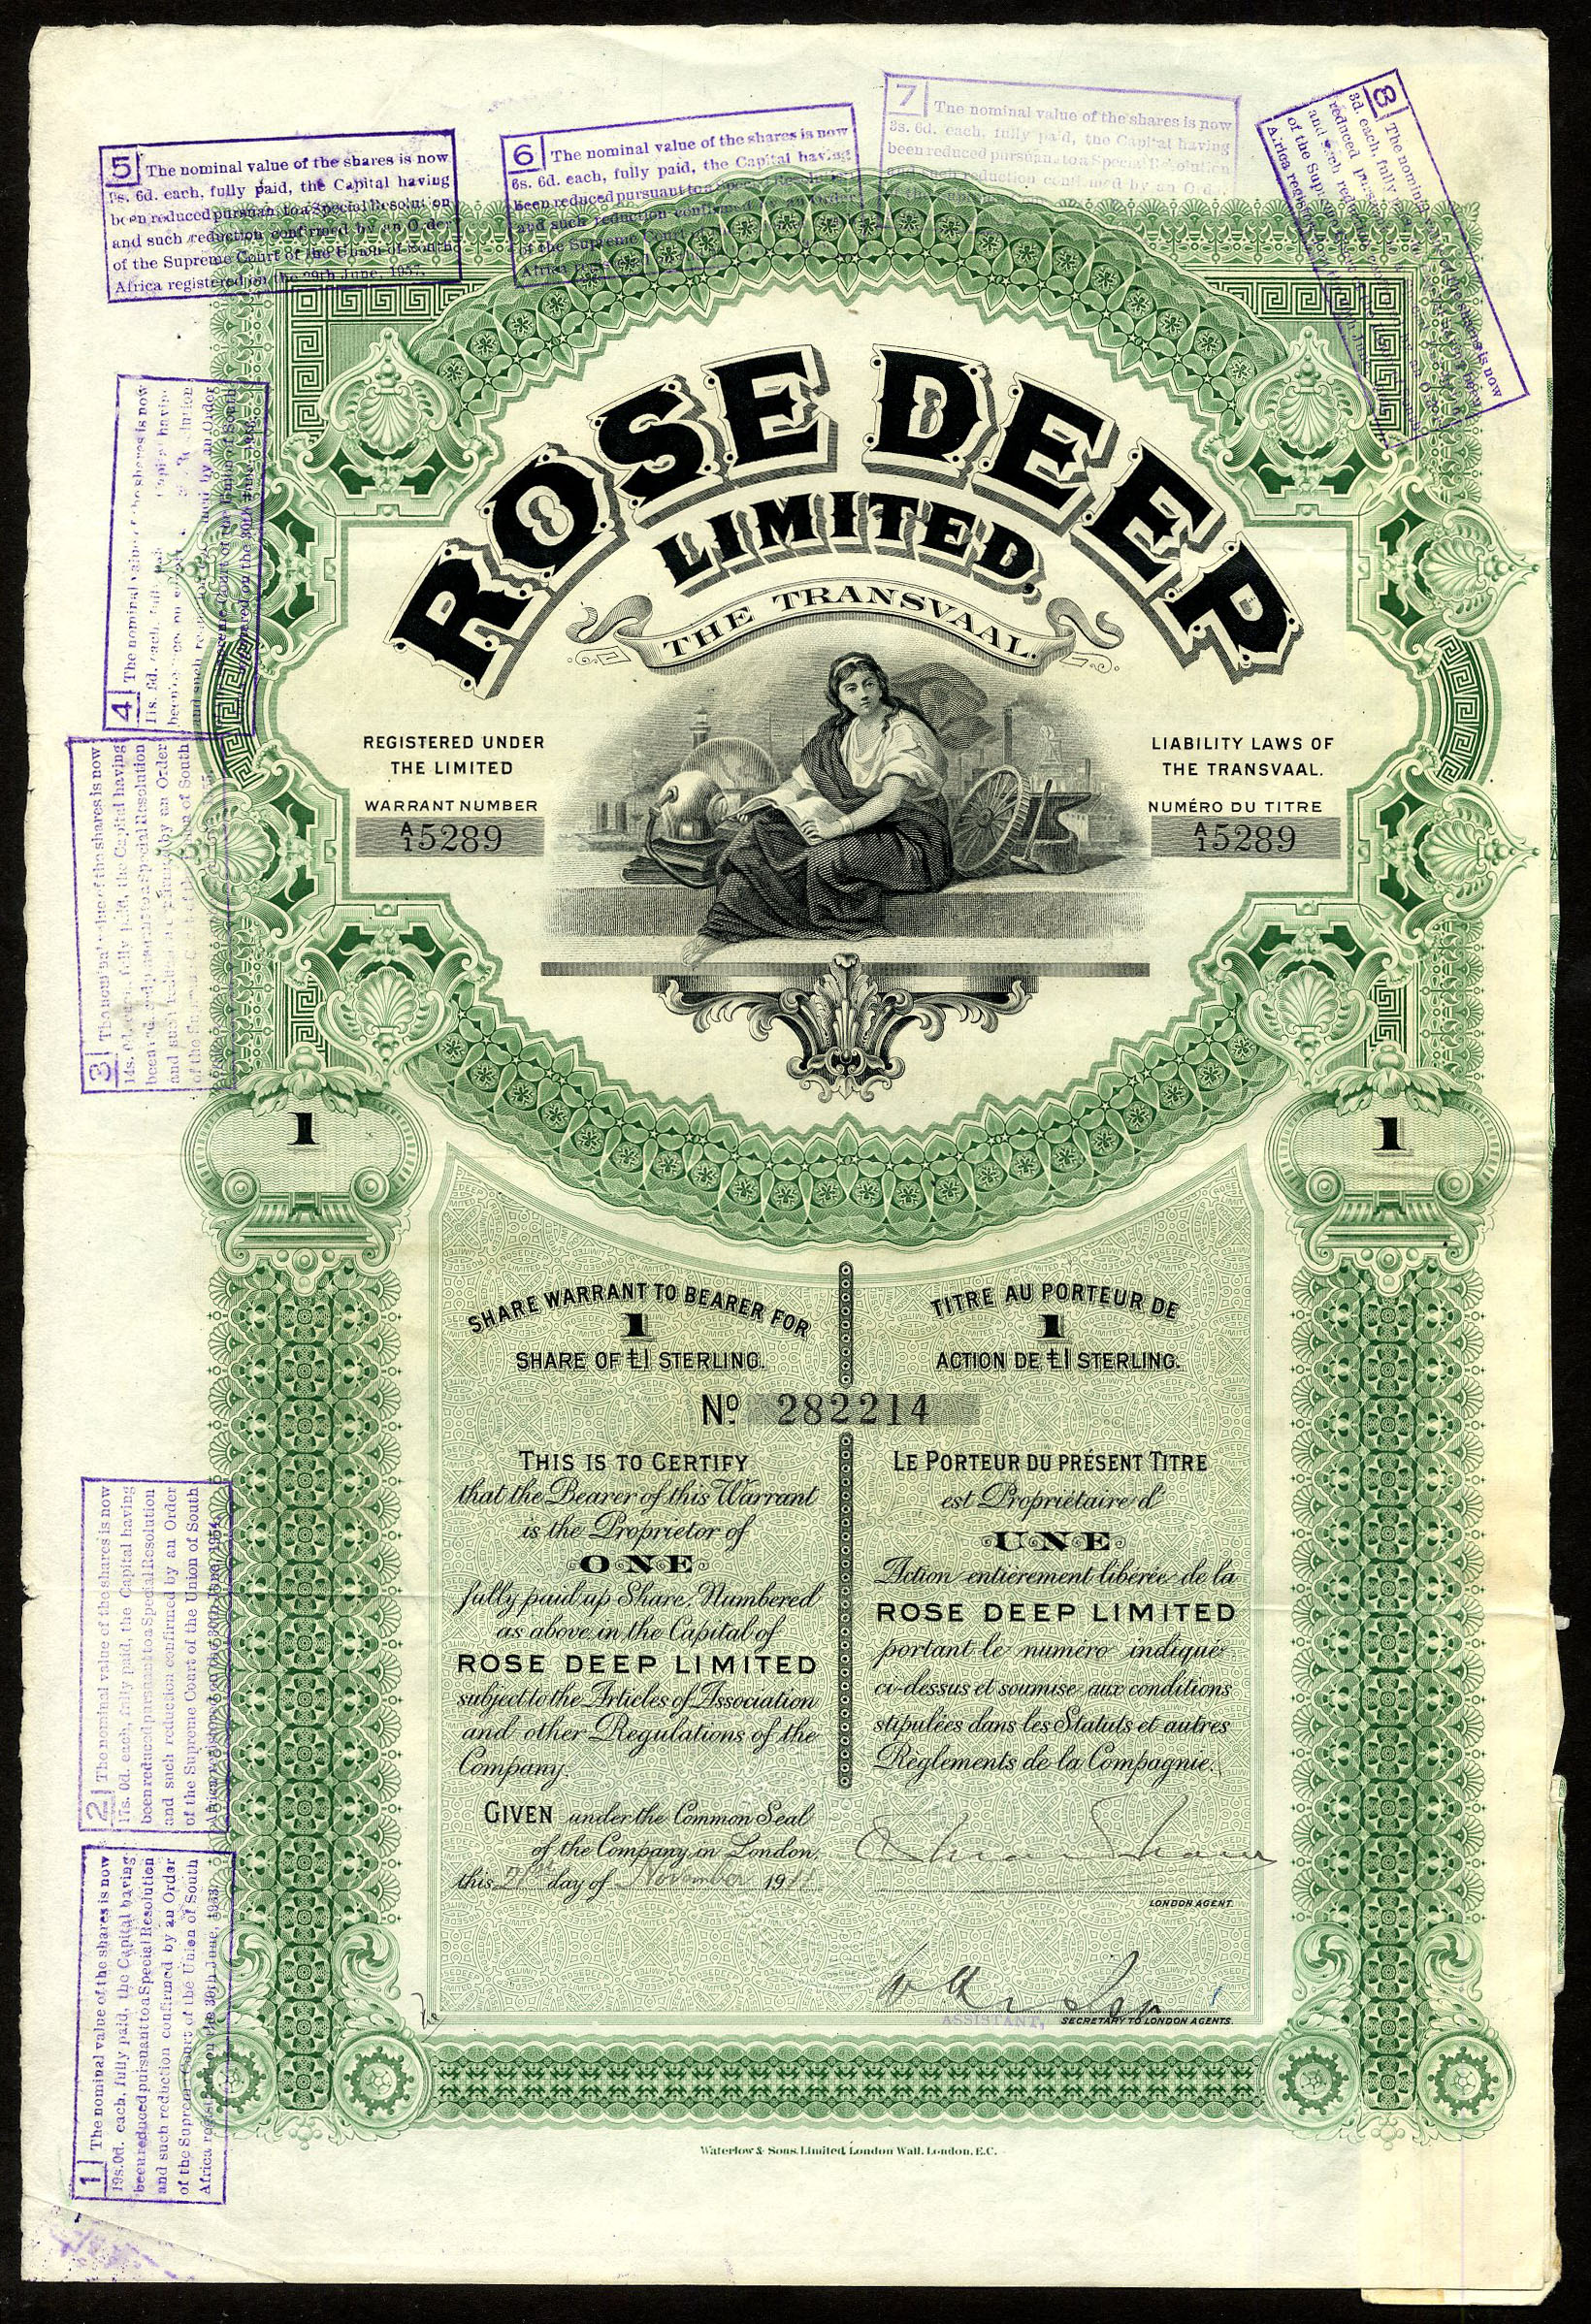 5 The nominal value of the shares is now
6d. each, fully paid, the Capital having
been reduced pursuant to a Special Resolution
and such reduction confirmed by an Order
of the Supreme Court of the Union of South
Africa registered on the 29th June, 1957.
6 The nominal value of the shares is now
6s. 6d. each, fully paid, the Capital having
been reduced pursuant to a Special Resolution
and such reduction confirmed by an Order
of the Supreme Court of
Africa
7 The nominal value of the shares is now
3s. 6d. each, fully paid, the Capital having
been reduced pursuant to a Special Resolution
and such reduction confirmed by an Order
of the Supreme
8 The nominal value of the shares is now
3d each, fully
reduced
and such reduction
of the Supreme Court
Africa registered on
4 The nominal value of the shares is now
11s. 6d. each, fully paid, Capital having
been
and such by an Order
Supreme Court of the Union of South
registered on the 30th June,
3 The nominal value of the shares is now
14s. each, fully paid, the Capital having
been reduced pursuant to a Special Resolution
and such reduction confirmed by an Order
of the Supreme Court of the Union of South
2 The nominal value of the shares is now
17s. 0d. each, fully paid, the Capital having
been reduced pursuant to a Special Resolution
and such reduction confirmed by an Order
of the Supreme Court of the Union of South
Africa registered on the 30th June, 1954.
1 The nominal value of the shares is now
19s. 0d. each, fully paid, the Capital having
been reduced pursuant to a Special Resolution
and such reduction confirmed by an Order
of the Supreme Court of the Union of South
Africa registered on the 30th June, 1953.
ROSE DEEP
LIMITED,
THE TRANSVAAL.
REGISTERED UNDER
THE LIMITED
LIABILITY LAWS OF
THE TRANSVAAL.
WARRANT NUMBER
A/1 5289
NUMÉRO DU TITRE
A/1 5289
1
1
SHARE WARRANT TO BEARER FOR
1
SHARE OF £1 STERLING.
TITRE AU PORTEUR DE
1
ACTION DE £1 STERLING.
No. 282214
THIS IS TO CERTIFY
that the Bearer of this Warrant
is the Proprietor of
ONE
fully paid up Share, Numbered
as above in the Capital of
ROSE DEEP LIMITED
subject to the Articles of Association
and other Regulations of the
Company.
GIVEN under the Common Seal
of the Company in London,
this 21st day of November 1911
LE PORTEUR DU PRÉSENT TITRE
est Propriétaire d'
UNE
Action entièrement libérée de la
ROSE DEEP LIMITED
portant le numéro indiqué
ci-dessus et soumise aux conditions
stipulées dans les Statuts et autres
Règlements de la Compagnie.
LONDON AGENT.
ASSISTANT, SECRETARY TO LONDON AGENTS.
Waterlow & Sons, Limited, London Wall, London, E.C.